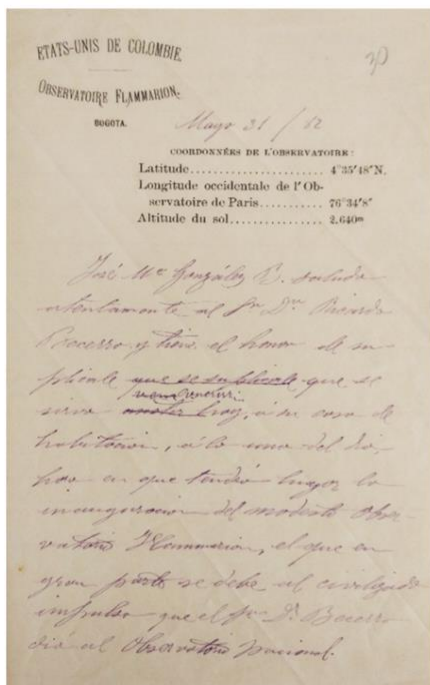 ETATS-UNIS DE COLOMBIE.
20
OBSERVATOIRE FLAMMARION.
BOGOTA.
Mayo 31 / 82
COORDONNÉES DE L'OBSERVATOIRE:
Latitude..................... 4°35'48"N.
Longitude occidentale de l'Ob-
servatoire de Paris........... 76°34'8"
Altitude du sol................ 2.640m
José Ma González B. saluda
atentamente al Sr Dr
Becerra, y tiene el honor de su
plicarle que se que se
sirva hoy, á su casa de
habitacion, á la una del dia,
hora en que tendrá lugar la
inauguracion del modesto Obser
vatorio Flammarion, el que en
gran parte se debe al civilizado
impulso que el Sr Dr Becerra
dió al Observatorio Nacional.